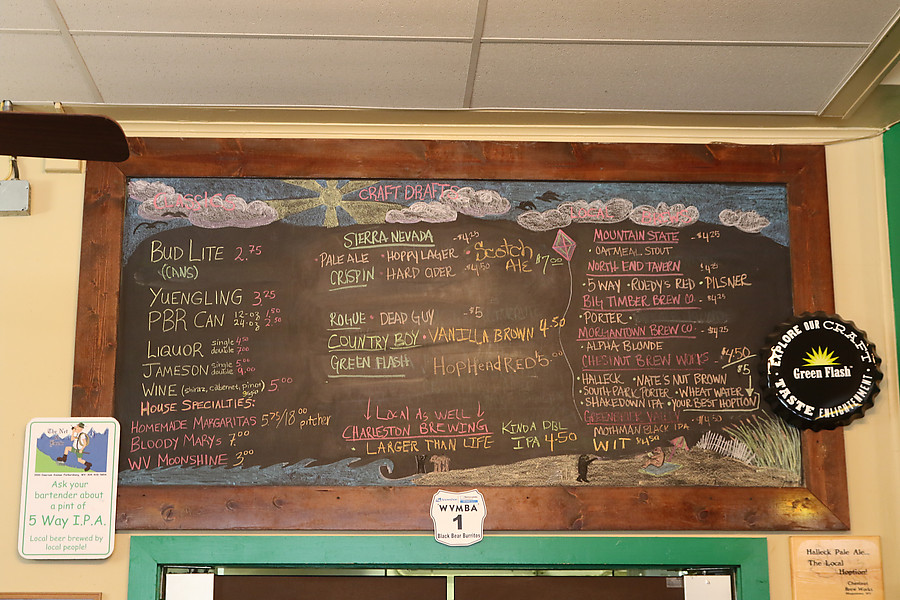 Classics
BUD LITE 2.75
(CANS)
YUENGLING 3.25
PBR CAN 12-oz 1.50
24-oz 2.50
LIQUOR single 4.50
double 7.00
JAMESON single 5.00
double 9.00
WINE (shiraz, cabernet, pinot) 5.00
HOUSE SPECIALTIES:
HOMEMADE MARGARITAS 5.75/18.00 pitcher
BLOODY MARYS 7.00
WV MOONSHINE 3.00
CRAFT DRAFTS
SIERRA NEVADA -$4.25
• PALE ALE • HOPPY LAGER
CRISPIN • HARD CIDER $4.50
SCOTCH ALE $7.00
ROGUE • DEAD GUY -$5
COUNTRY BOY • VANILLA BROWN 4.50
GREEN FLASH HOP HEAD RED $5.00
↓ LOCAL AS WELL ↓
CHARLESTON BREWING
• LARGER THAN LIFE
KINDA DBL
IPA 4.50
LOCAL
MOUNTAIN STATE -$4.25
• OATMEAL STOUT
NORTH END TAVERN $4.25
• 5 WAY • ROEDY'S RED • PILSNER
BIG TIMBER BREW CO. -$4.25
• PORTER •
MORGANTOWN BREW CO. -$4.25
• ALPHA BLONDE
CHESTNUT BREW WORKS $4.50
$5
• HALLECK • NATE'S NUT BROWN
• SOUTH PARK PORTER • WHEAT WATER
• SHAKEDOWN IPA • YOUR BEST HOPTION
GREENBRIER VALLEY -$4.50
MOTHMAN BLACK IPA
WIT $4.50
EXPLORE OUR CRAFT
Green Flash
TASTE ENLIGHTENMENT
The Net
Ask your
bartender about
a pint of
5 Way I.P.A.
Local beer brewed by
local people!
WVMBA
1
Black Bear Burritos
Halleck Pale Ale...
The Local
Hoption!
Chestnut
Brew Works